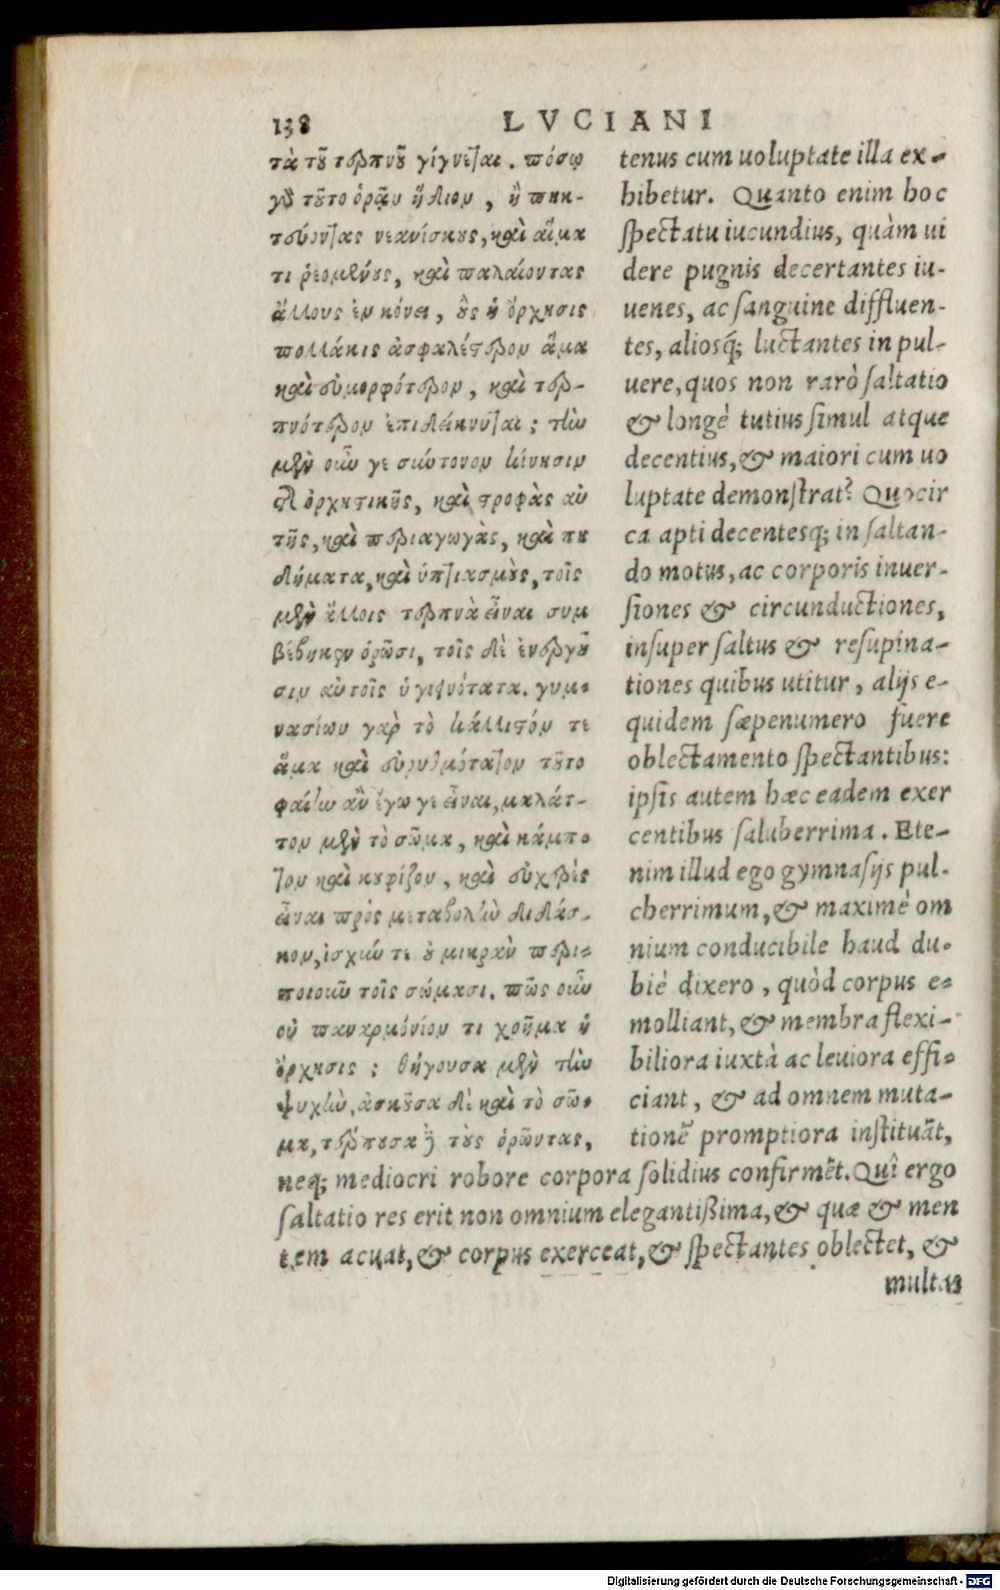 138 LVCIANI
τὰ τοῦ τερπνοῦ γίγνεται. πόσῳ
γὰρ τοῦτο ὁρᾷν ἥδιον, ἢ πυκ-
τεύοντας νεανίσκους, καὶ αἵμα
τι ῥεομένους, καὶ παλαίοντας
ἄλλους ἐν κόνει, οὓς ἡ ὄρχησις
πολλάκις ἀσφαλέστερον ἅμα
καὶ εὐμορφότερον, καὶ τερ-
πνότερον ἐπιδείκνυται; τὴν
μὲν οὖν γε σύντονον κίνησιν
τῆς ὀρχηστικῆς, καὶ στροφὰς αὐ
τῆς, καὶ περιαγωγὰς, καὶ πη
δήματα, καὶ ὑπτιασμοὺς, τοῖς
μὲν ἄλλοις τερπνὰ εἶναι συμ
βέβηκεν ὁρῶσι, τοῖς δὲ ἐνεργοῦ
σιν αὐτοῖς ὑγιεινότατα. γυμ-
νασίων γὰρ τὸ κάλλιστόν τε
ἅμα καὶ εὐρυθμότατον τοῦτο
φαίην ἂν ἔγωγε εἶναι, μαλάτ-
τον μὲν τὸ σῶμα, καὶ κάμπ-
τον καὶ κουφίζον, καὶ εὐχερὲς
εἶναι πρὸς μεταβολὴν διδάσ-
κον, ἰσχύν τε οὐ μικρὰν περι-
ποιοῦν τοῖς σώμασι. πῶς οὖν
οὐ παναρμόνιόν τι χρῆμα ἡ
ὄρχησις; θήγουσα μὲν τὴν
ψυχὴν, ἀσκοῦσα δὲ καὶ τὸ σῶ-
μα, τέρπουσα δὲ τοὺς ὁρῶντας,
tenus cum uoluptate illa ex-
hibetur. Quanto enim hoc
spectatu iucundius, quàm ui
dere pugnis decertantes iu-
uenes, ac sanguine diffluen-
tes, aliosq́; luctantes in pul-
uere, quos non rarò saltatio
& longè tutius simul atque
decentius, & maiori cum uo
luptate demonstrat? Quocir
ca apti decentesq; in saltan-
do motus, ac corporis inuer-
siones & circunductiones,
insuper saltus & resupina-
tiones quibus utitur, alijs e-
quidem sæpenumero fuere
oblectamento spectantibus:
ipsis autem hæc eadem exer
centibus saluberrima. Ete-
nim illud ego gymnasijs pul-
cherrimum, & maximè om
nium conducibile haud du-
biè dixero, quòd corpus e-
molliant, & membra flexi-
biliora iuxtà ac leuiora effi-
ciant, & ad omnem muta-
tionẽ promptiora instituãt,
neq; mediocri robore corpora solidius confirmẽt. Quî ergo
saltatio res erit non omnium elegantißima, & quæ & men
tem acuat, & corpus exerceat, & spectantes oblectet, &
multa
Digitalisierung gefördert durch die Deutsche Forschungsgemeinschaft - DFG